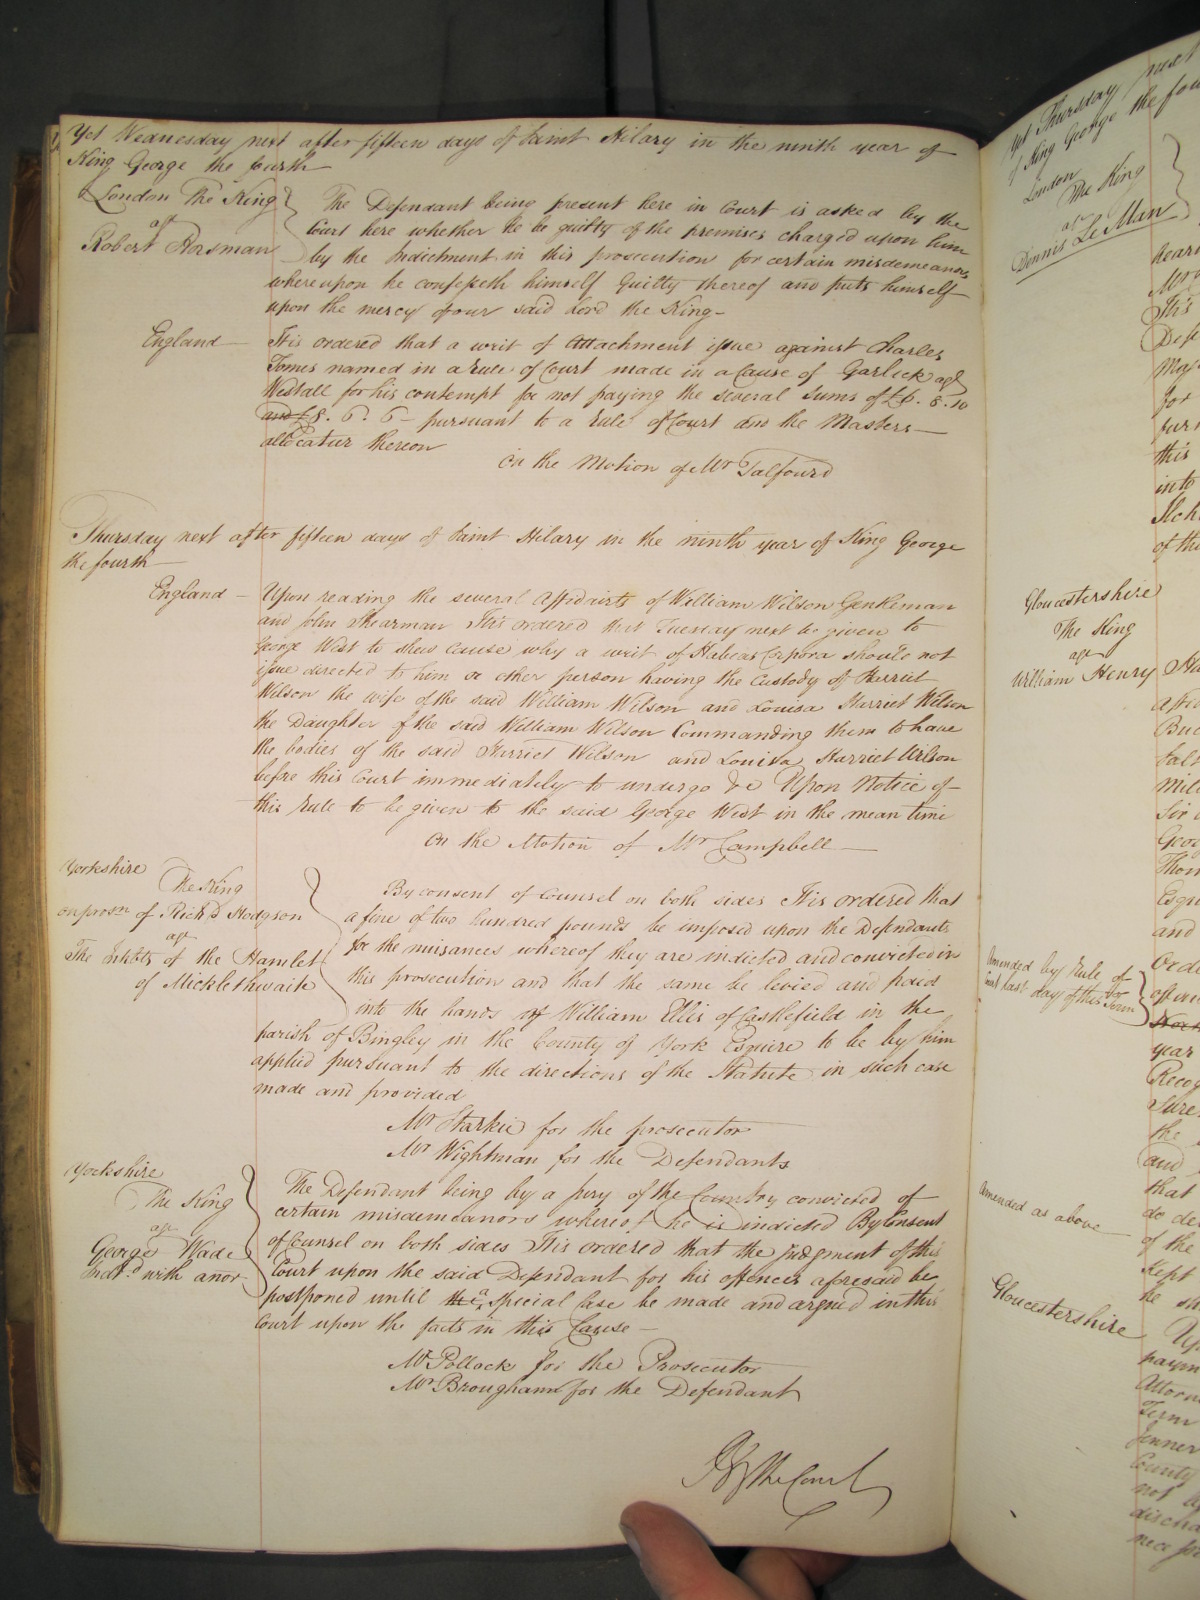 Yet Wednesday next after fifteen days of Saint Hilary in the ninth year of
King George the fourth
London The King
agt
Robert Horsman
The Defendant being present here in Court is asked by the
Court here whether he be guilty of the premises charged upon him
by the Indictment in this prosecution for certain misdemeanors
whereupon he confesseth himself Guilty thereof and puts himself
upon the mercy of our said Lord the King
England
It is ordered that a writ of Attachment issue against Charles
Tomes named in a Rule of Court made in a Cause of Garlick agt
Westall for his contempt for not paying the several Sums of £6. 8. 10
and £8. 6. 6 pursuant to a Rule of Court and the Masters
allocatur thereon
On the Motion of Mr Talfourd
Thursday next after fifteen days of Saint Hilary in the ninth year of King George
the fourth
England
Upon reading the several Affidavits of William Wilson Gentleman
and John Shearman It is ordered that Tuesday next be given to
George West to shew Cause why a writ of Habeas Corpora should not
issue directed to him or other person having the Custody of Harriet
Wilson the wife of the said William Wilson and Louisa Harriet Wilson
the Daughter of the said William Wilson Commanding them to have
the bodies of the said Harriet Wilson and Louisa Harriet Wilson
before this Court immediately to undergo &c Upon Notice of
this Rule to be given to the said George West in the mean time
On the Motion of Mr Campbell
Yorkshire
The King
on prosn of Richd Hodgson
agt
The Inhts of the Hamlet
of Micklethwaite
By consent of Counsel on both sides It is ordered that
a fine of two hundred pounds be imposed upon the Defendants
for the nuisances whereof they are indicted and convicted in
this prosecution and that the same be levied and paid
into the hands of William Ellis of Castlefield in the
parish of Bingley in the County of York Esquire to be by him
applied pursuant to the directions of the Statute in such case
made and provided
Mr Starkie for the prosecutor
Mr Wightman for the Defendants
Yorkshire
The King
agt
George Wade
Indt.d with anor
The Defendant being by a jury of the Country convicted of
certain misdemeanors whereof he is indicted By Consent
of Counsel on both sides It is ordered that the judgment of this
Court upon the said Defendant for his offences aforesaid be
postponed until the a Special Case be made and argued in this
Court upon the facts in this Cause
Mr Pollock for the Prosecutor
Mr Brougham for the Defendant
By the Court
Yet Thursday next
of King George the fou
London
The King
agt
Dennis Le Man
heari
this
into
Ilch
of the
Gloucestershire
The King
agt
William Henry
and
Amended by Rule of
Court last day of this Term
year
Recog
the
and
that
of the
kept
Amended as above
Gloucestershire
paym
Attorn
Term
Jenner
County
not
discha